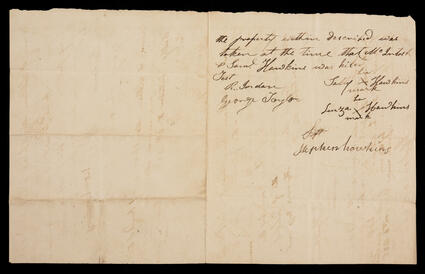 the property within described was
taken at the time that McIntosh
& Saml Hawkins was kild
Test
R. Jordan
George Taylor
Sally X Hawkins
mark
her
Hawkins
mark
Stephen Hawkins